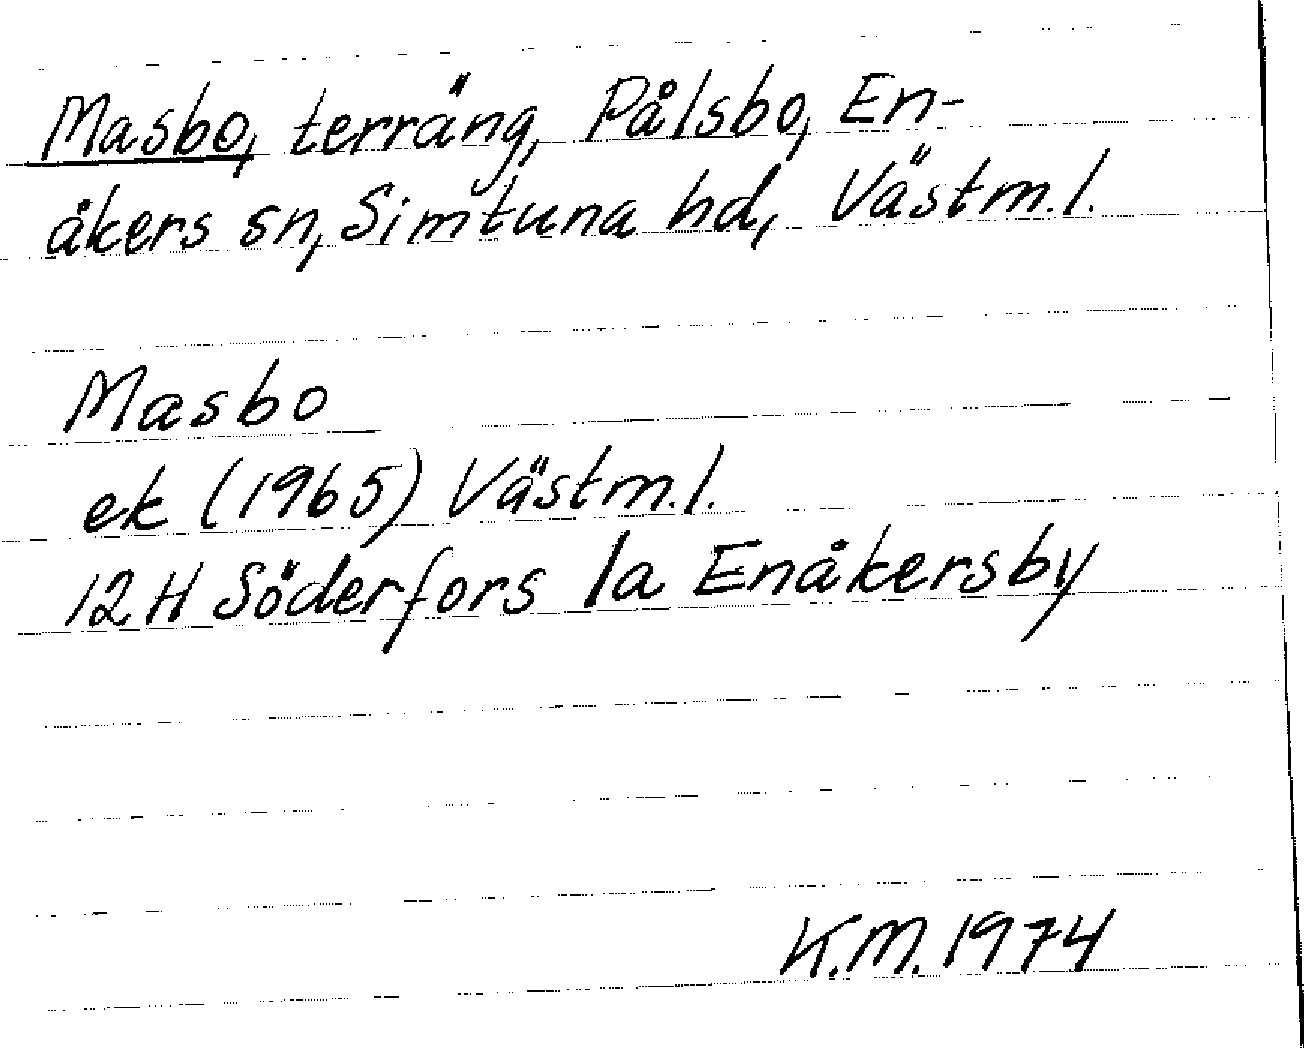 Masbo, terräng, Pålsbo, En-
åkers sn, Simtuna hd, Västm.l.
Masbo
ek (1965) Västm.l.
12H Söderfors 1a Enåkersby
K.M. 1974